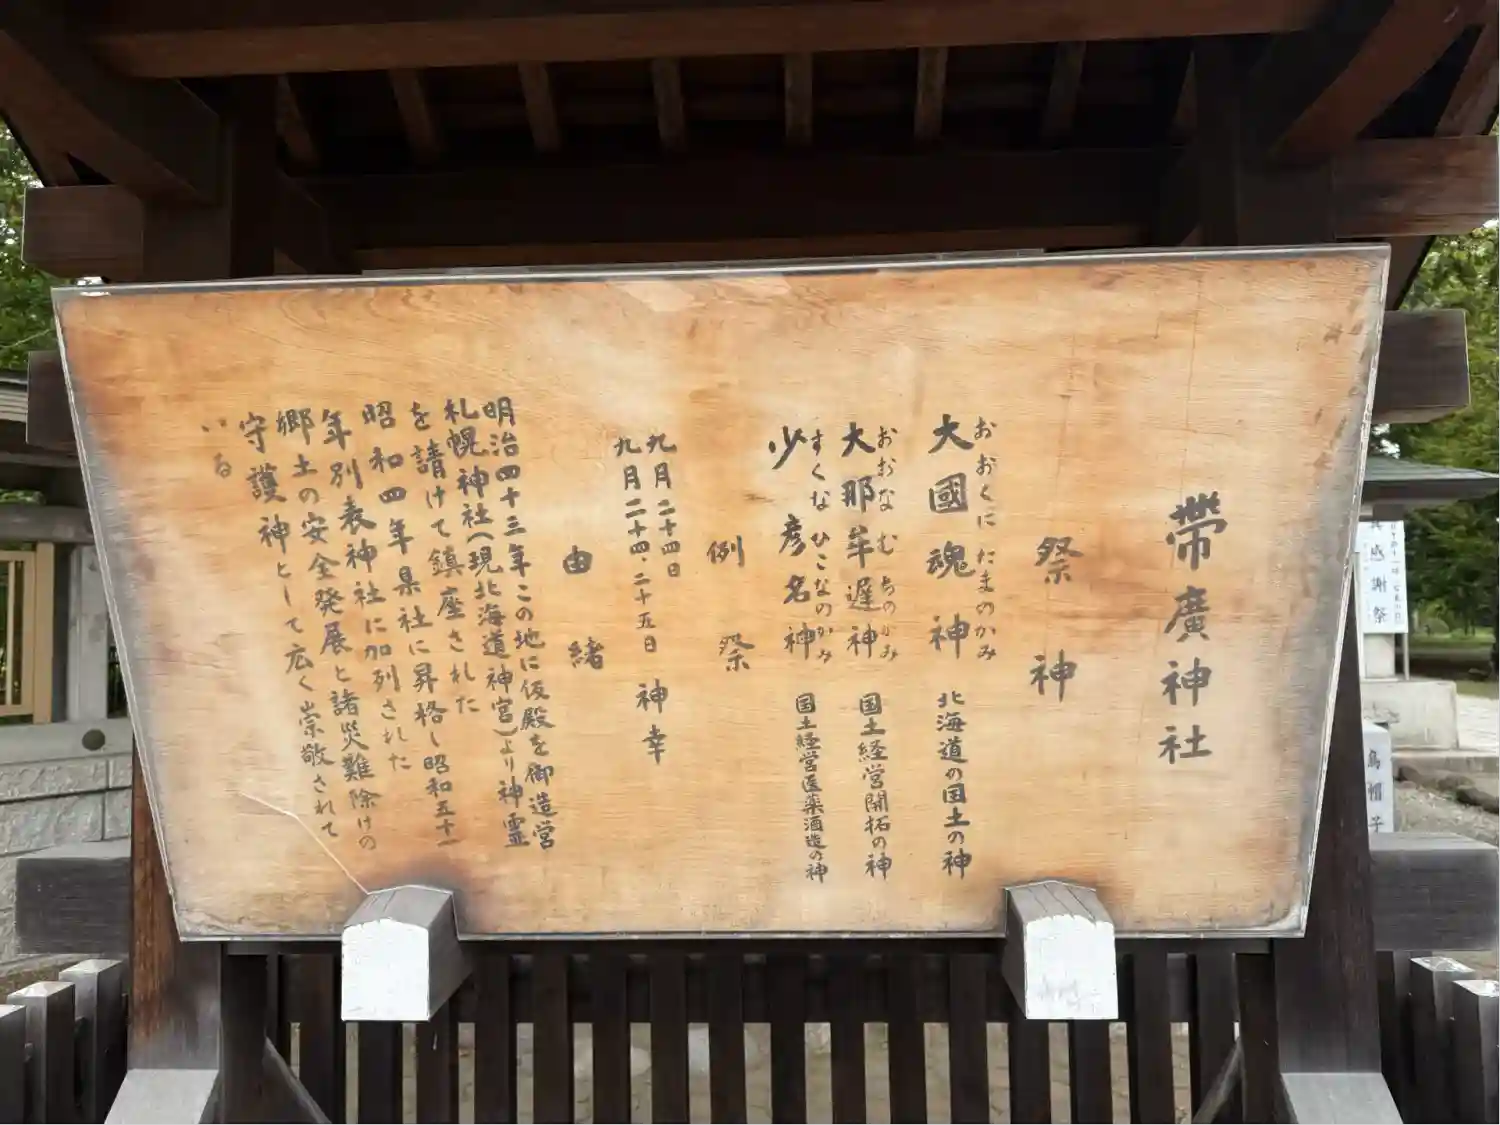 帶廣神社
祭神
大國魂神 北海道の国土の神
おおくにたまのかみ
大那牟遅神 国土経営開拓の神
おおなむちのかみ
少彦名神 国土経営医薬酒造の神
すくなひこなのかみ
例祭
九月二十四日
九月二十四・二十五日 神幸
由緒
明治四十三年この地に仮殿を御造営
札幌神社(現北海道神宮)より神霊
を請けて鎮座された
昭和四年県社に昇格し昭和五十一
年別表神社に加列された
郷土の安全発展と諸災難除けの
守護神として広く崇敬されて
いる
感謝祭
烏帽子